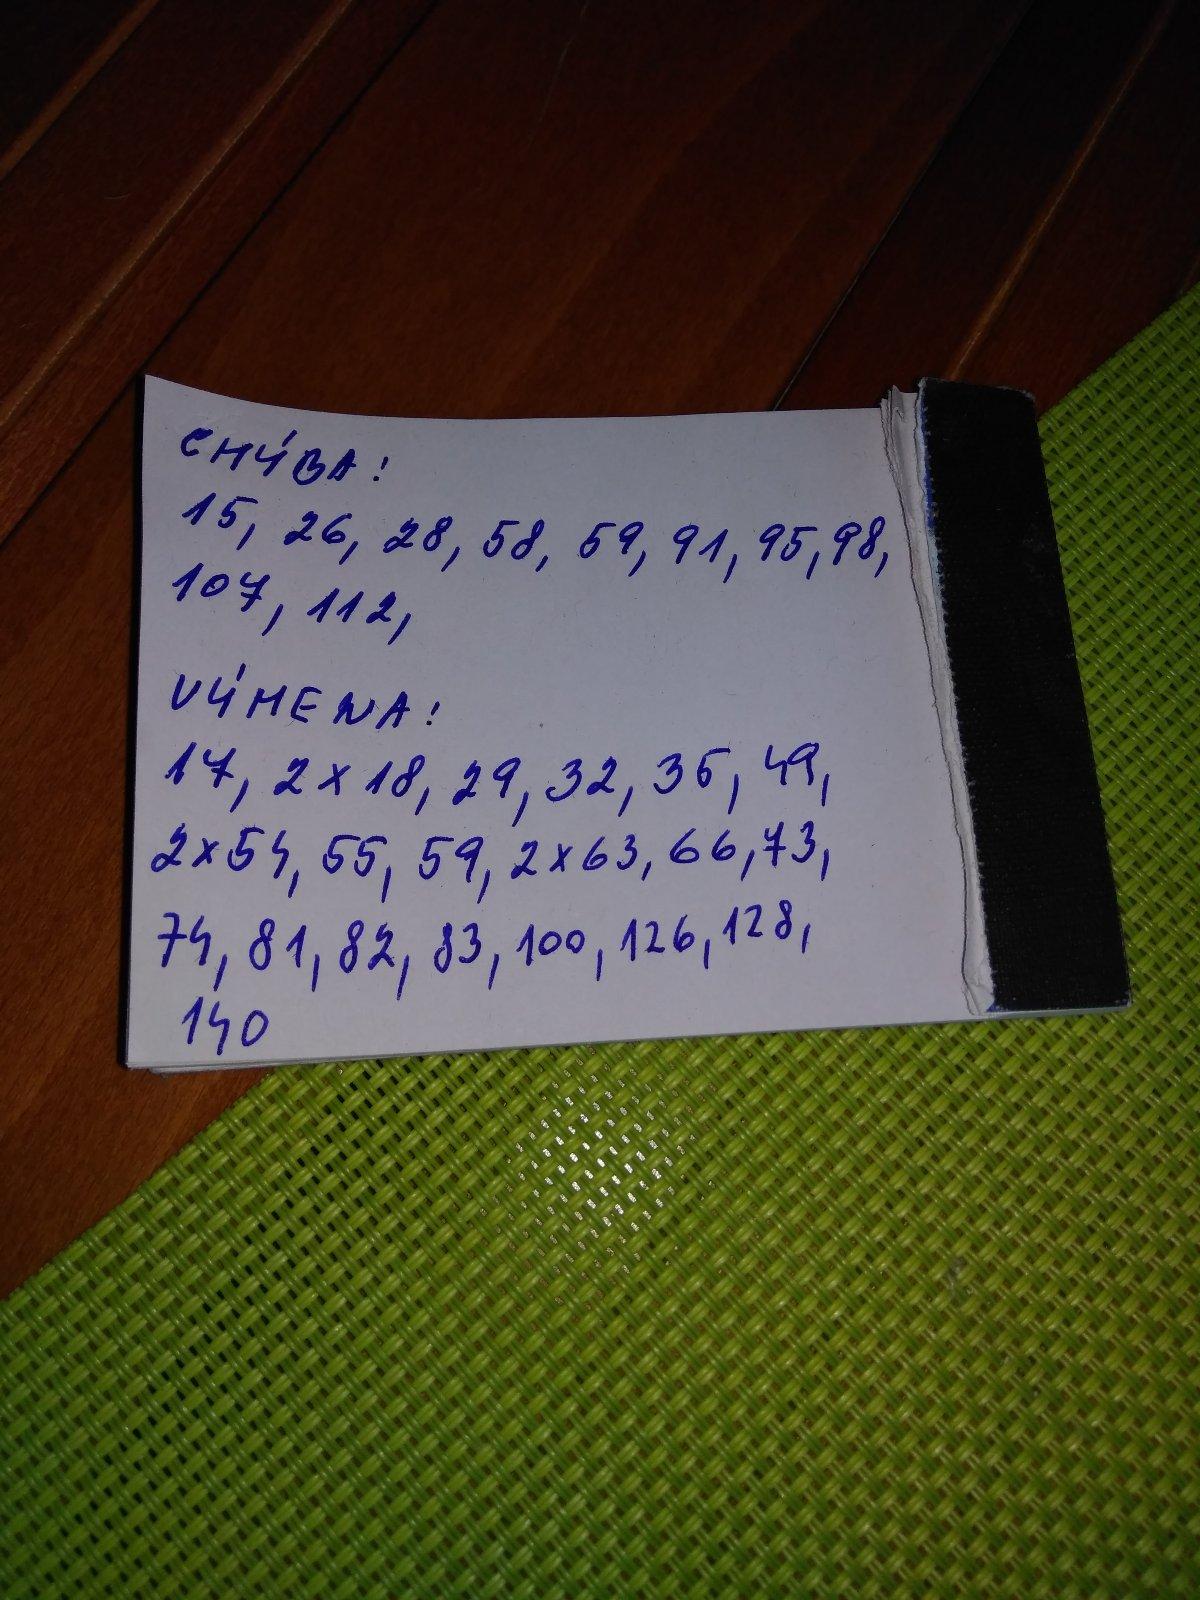 CHÝBA!
15, 26, 28, 58, 59, 91, 95, 98,
107, 112,
VÝMENA!
17, 2x18, 29, 32, 35, 49,
2x54, 55, 59, 2x63, 66, 73,
74, 81, 82, 83, 100, 126, 128,
140